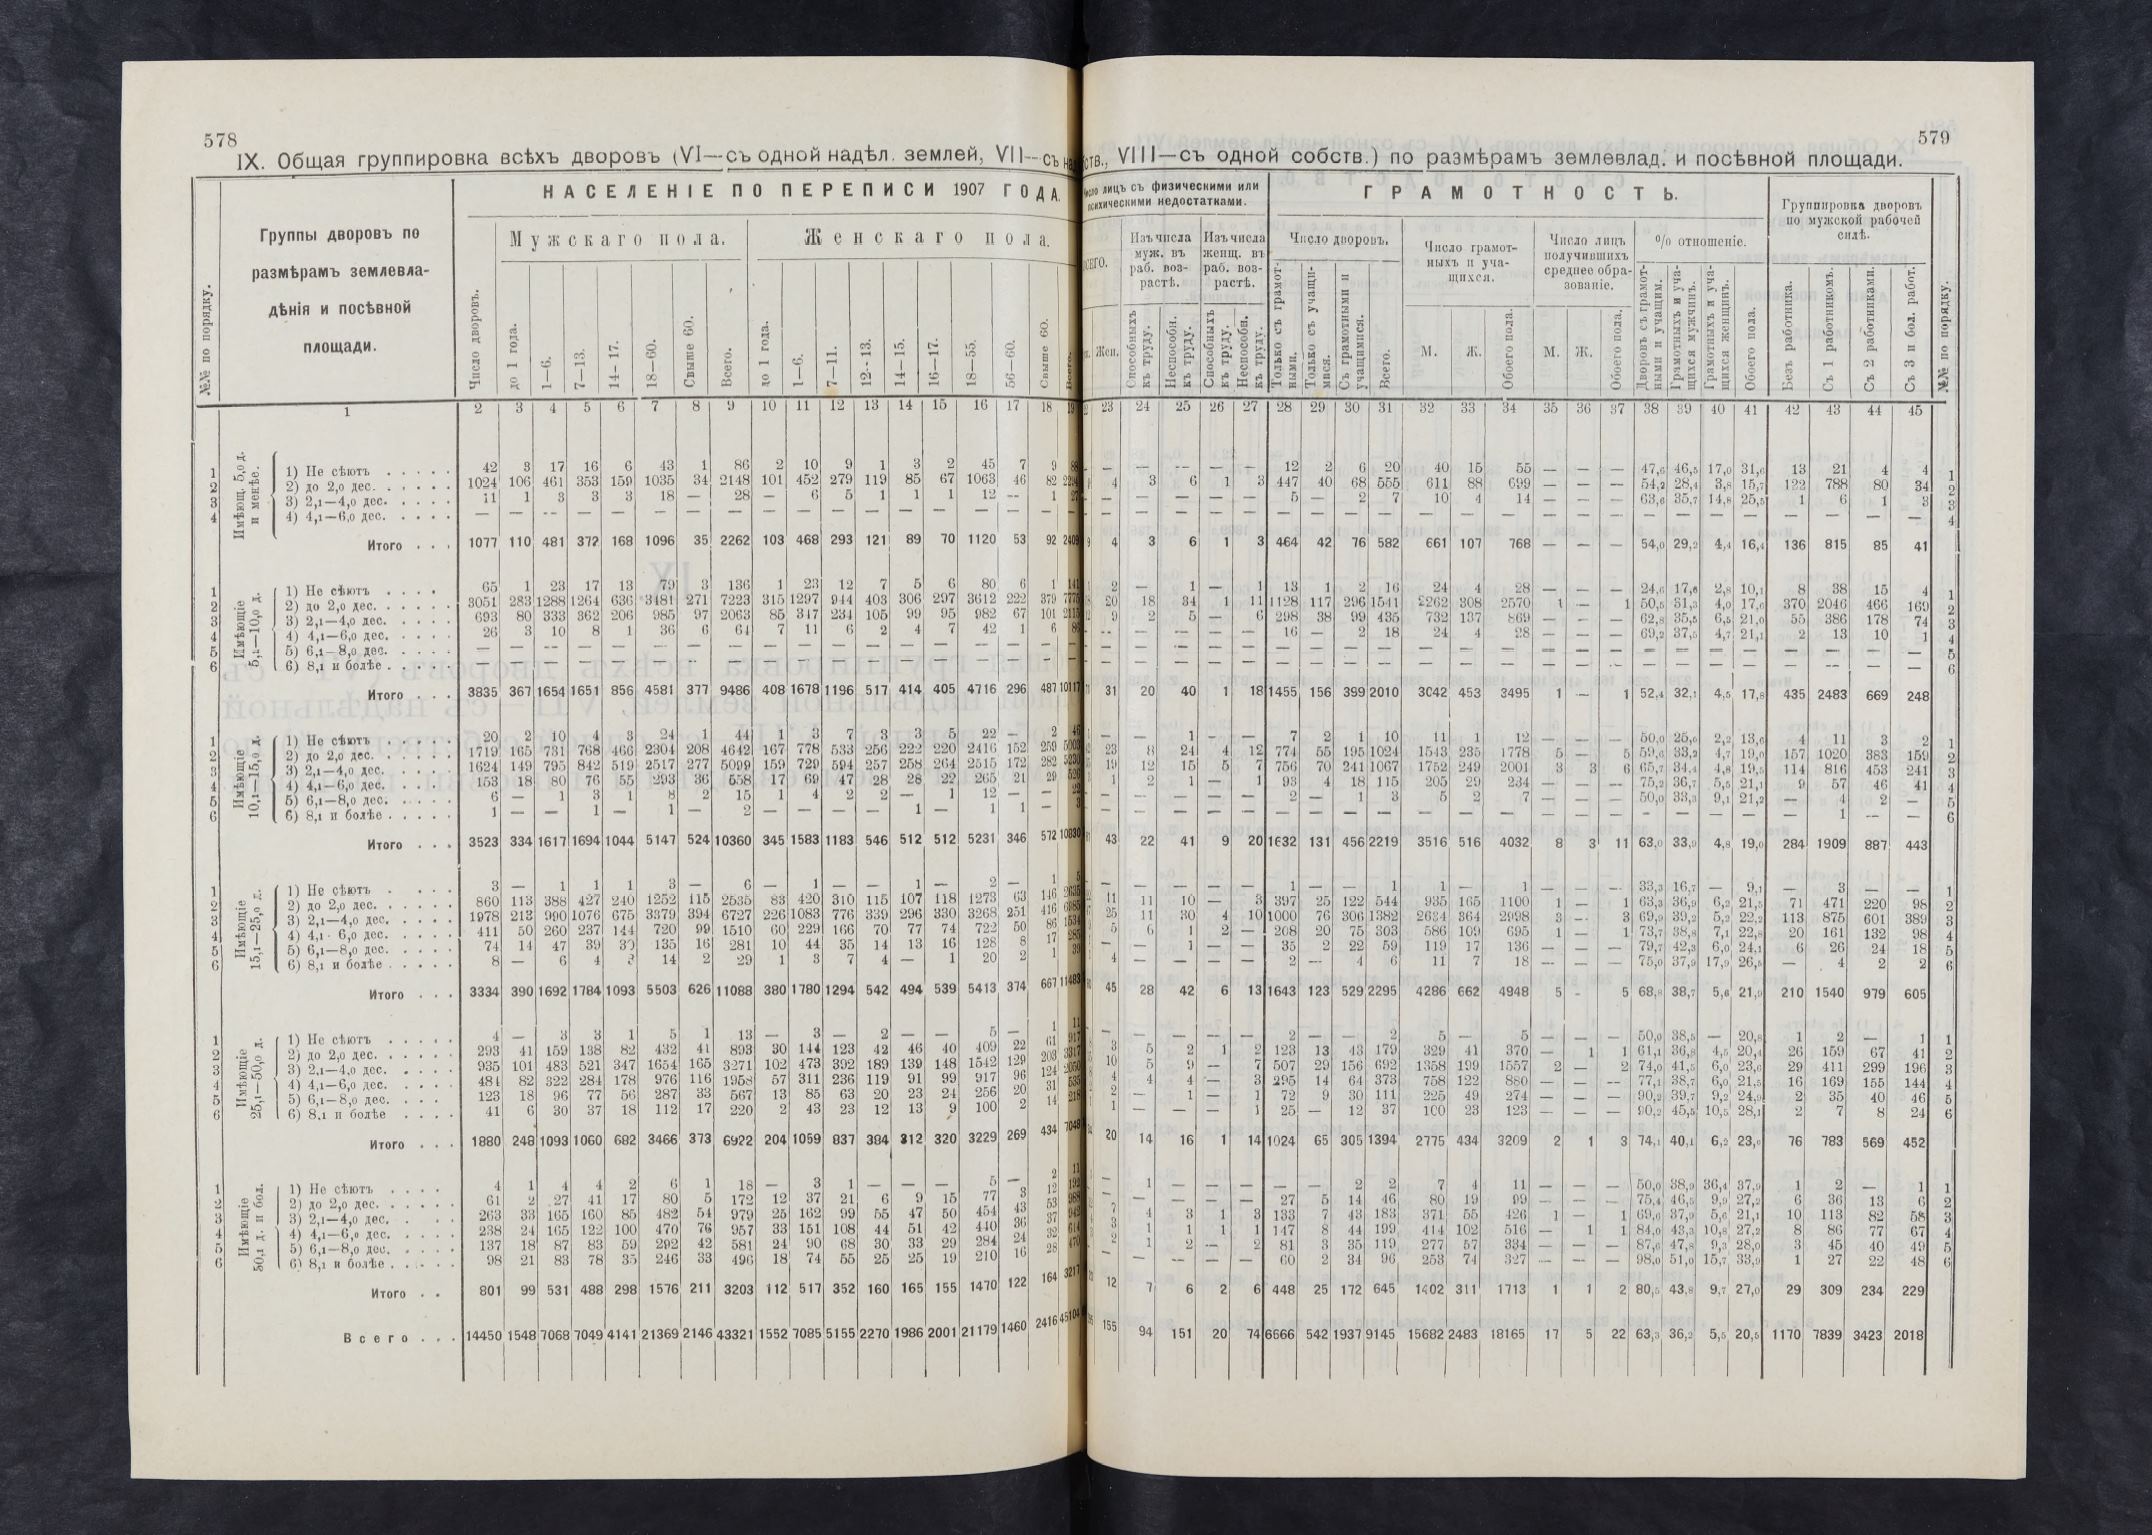 578
IX. Общая группировка всѣхъ дворовъ (VI—съ одной надѣл. землей, VII—съ
№№ по порядку.
Группы дворовъ по
размѣрамъ землевла-
дѣнія и посѣвной
площади.
НАСЕЛЕНІЕ ПО ПЕРЕПИСИ 1907 ГОДА.
Число дворовъ.
Мужскаго пола.
Женскаго пола.
до 1 года. 1—6. 7—13. 14—17. 18—60. Свыше 60. Всего. до 1 года. 1—6. 7—11. 12—13. 14—15. 16—17. 18—55. 56—60. Свыше 60. Всего.
1 2 3 4 5 6 7 8 9 10 11 12 13 14 15 16 17 18 19
Имѣющ. 5,0 д. и менѣе.
1 1) Не сѣютъ . . . . . 42 3 17 16 6 43 1 86 2 10 9 1 3 2 45 7 9
2 2) до 2,0 дес. . . . . . 1024 106 461 353 159 1035 34 2148 101 452 279 119 85 67 1063 46 82
3 3) 2,1—4,0 дес. . . . . 11 1 3 3 3 18 — 28 — 6 5 1 1 1 12 — 1
4 4) 4,1—6,0 дес. . . . . — — — — — — — — — — — — — — — — —
Итого . . . 1077 110 481 372 168 1096 35 2262 103 468 293 121 89 70 1120 53 92 2409
Имѣющіе 5,1—10,0 д.
1 1) Не сѣютъ . . . . 65 1 23 17 13 79 3 136 1 23 12 7 5 6 80 6 1 141
2 2) до 2,0 дес. . . . . . 3051 283 1288 1264 636 3481 271 7223 315 1297 944 403 306 297 3612 222 379
3 3) 2,1—4,0 дес. . . . . 693 80 333 362 206 985 97 2063 85 347 234 105 99 95 982 67 101
4 4) 4,1—6,0 дес. . . . . 26 3 10 8 1 36 6 64 7 11 6 2 4 7 42 1 6
5 5) 6,1—8,0 дес. . . . . — — — — — — — — — — — — — — — — —
6 6) 8,1 и болѣе . . . . — — — — — — — — — — — — — — — — —
Итого . . . 3835 367 1654 1651 856 4581 377 9486 408 1678 1196 517 414 405 4716 296 487 10117
Имѣющіе 10,1—15,0 д.
1 1) Не сѣютъ . . . . . 20 2 10 4 3 24 1 44 1 3 7 3 3 5 22 — 2 46
2 2) до 2,0 дес. . . . . . 1719 165 731 768 466 2304 208 4642 167 778 533 256 222 220 2416 152 259 5003
3 3) 2,1—4,0 дес. . . . . 1624 149 795 842 519 2517 277 5099 159 729 594 257 258 264 2515 172 282 5230
4 4) 4,1—6,0 дес. . . . . 153 18 80 76 55 293 36 558 17 69 47 28 28 22 265 21 29 526
5 5) 6,1—8,0 дес. . . . . 6 — 1 3 1 8 2 15 1 4 2 2 — 1 12 — —
6 6) 8,1 и болѣе . . . . . 1 — — 1 — 1 — 2 — — — — 1 — 1 1 —
Итого . . . 3523 334 1617 1694 1044 5147 524 10360 345 1583 1183 546 512 512 5231 346 572 10830
Имѣющіе 15,1—25,0 д.
1 1) Не сѣютъ . . . . 3 — 1 1 1 3 — 6 — 1 — — 1 — 2 — 1 5
2 2) до 2,0 дес. . . . . . 860 113 388 427 240 1252 115 2535 83 420 310 115 107 118 1273 63 146 2635
3 3) 2,1—4,0 дес. . . . . 1978 213 990 1076 675 3379 394 6727 226 1083 776 339 296 330 3268 251 416 6985
4 4) 4,1—6,0 дес. . . . . 411 50 260 237 144 720 99 1510 60 229 166 70 77 74 722 50 86 1534
5 5) 6,1—8,0 дес. . . . . 74 14 47 39 30 135 16 281 10 44 35 14 13 16 128 8 17 285
6 6) 8,1 и болѣе . . . . . 8 — 6 4 3 14 2 29 1 3 7 4 — 1 20 2 1 39
Итого . . . 3334 390 1692 1784 1093 5503 626 11088 380 1780 1294 542 494 539 5413 374 667 11483
Имѣющіе 25,1—50,0 д.
1 1) Не сѣютъ . . . . . 4 — 3 3 1 5 1 13 — 3 — 2 — — 5 — 1 11
2 2) до 2,0 дес. . . . . . 293 41 159 138 82 432 41 893 30 144 123 42 46 40 409 22 61 917
3 3) 2,1—4,0 дес. . . . . 935 101 483 521 347 1654 165 3271 102 473 392 189 139 148 1542 129 203 3317
4 4) 4,1—6,0 дес. . . . . 484 82 322 284 178 976 116 1958 57 311 236 119 91 99 917 96 124 2050
5 5) 6,1—8,0 дес. . . . . 123 18 96 77 56 287 33 567 13 85 63 20 23 24 256 20 31 535
6 6) 8,1 и болѣе . . . . 41 6 30 37 18 112 17 220 2 43 23 12 13 9 100 2 14 218
Итого . . . 1880 248 1093 1060 682 3466 373 6922 204 1059 837 384 312 320 3229 269 434 7048
Имѣющіе 50,1 д. и бол.
1 1) Не сѣютъ . . . . 4 1 4 4 2 6 1 18 — 3 1 — — — 5 — 2 11
2 2) до 2,0 дес. . . . . . 61 2 27 41 17 80 5 172 12 37 21 6 9 15 77 3 12 192
3 3) 2,1—4,0 дес. . . . . 263 33 165 160 85 482 54 979 25 162 99 55 47 50 454 43 53 988
4 4) 4,1—6,0 дес. . . . . 238 24 165 122 100 470 76 957 33 151 108 44 51 42 440 36 37 942
5 5) 6,1—8,0 дес. . . . . 137 18 87 83 59 292 42 581 24 90 68 30 33 29 284 24 32 614
6 6) 8,1 и болѣе . . . . . 98 21 83 78 35 246 33 496 18 74 55 25 25 19 210 16 28 470
Итого . . 801 99 531 488 298 1576 211 3203 112 517 352 160 165 155 1470 122 164 3217
Всего . . . 14450 1548 7068 7049 4141 21369 2146 43321 1552 7085 5155 2270 1986 2001 21179 1460 2416 45104
579
VIII—съ одной собств.) по размѣрамъ землевлад. и посѣвной площади.
лицъ съ физическими или
психическими недостатками.
ГРАМОТНОСТЬ.
Группировка дворовъ по мужской рабочей силѣ.
№№ по порядку.
Изъ числа муж. въ раб. воз-растѣ.
Изъ числа женщ. въ раб. воз-растѣ.
Число дворовъ.
Число грамот-ныхъ и уча-щихся.
Число лицъ получившихъ среднее обра-зованіе.
% отношеніе.
Жен. Способныхъ къ труду. Неспособн. къ труду. Способныхъ къ труду. Неспособн. къ труду. Только съ грамот-ными. Только съ учащи-мися. Съ грамотными и учащимися. Всего. М. Ж. Обоего пола. М. Ж. Обоего пола. Дворовъ съ грамот-ными и учащим. Грамотныхъ и уча-щихся мужчинъ. Грамотныхъ и уча-щихся женщинъ. Обоего пола. Безъ работника. Съ 1 работникомъ. Съ 2 работниками. Съ 3 и бол. работ.
23 24 25 26 27 28 29 30 31 32 33 34 35 36 37 38 39 40 41 42 43 44 45
— — — — — 12 2 6 20 40 15 55 — — — 47,6 46,5 17,0 31,6 13 21 4 4 1
4 3 6 1 3 447 40 68 555 611 88 699 — — — 54,2 28,4 3,8 15,7 122 788 80 34 2
— — — — — 5 — 2 7 10 4 14 — — — 63,6 35,7 14,8 25,5 1 6 1 3 3
— — — — — — — — — — — — — — — — — — — — — — — 4
4 3 6 1 3 464 42 76 582 661 107 768 — — — 54,0 29,2 4,4 16,4 136 815 85 41
2 — 1 — 1 13 1 2 16 24 4 28 — — — 24,6 17,6 2,8 10,1 8 38 15 4 1
20 18 34 1 11 1128 117 296 1541 2262 308 2570 1 — 1 50,5 31,3 4,0 17,6 370 2046 466 169 2
9 2 5 — 6 298 38 99 435 732 137 869 — — — 62,8 35,5 6,5 21,0 55 386 178 74 3
— — — — — 16 — 2 18 24 4 28 — — — 69,2 37,5 4,7 21,1 2 13 10 1 4
— — — — — — — — — — — — — — — — — — — — — — — 5
— — — — — — — — — — — — — — — — — — — — — — — 6
31 20 40 1 18 1455 156 399 2010 3042 453 3495 1 — 1 52,4 32,1 4,5 17,8 435 2483 669 248
— — 1 — — 7 2 1 10 11 1 12 — — — 50,0 25,0 2,2 13,6 4 11 3 2 1
23 8 24 4 12 774 55 195 1024 1543 235 1778 5 — 5 59,6 33,2 4,7 19,0 157 1020 383 159 2
19 12 15 5 7 756 70 241 1067 1752 249 2001 3 3 6 65,7 34,4 4,8 19,5 114 816 453 241 3
1 2 1 — 1 93 4 18 115 205 29 234 — — — 75,2 36,7 5,5 21,1 9 57 46 41 4
— — — — — 2 — 1 3 5 2 7 — — — 50,0 33,3 9,1 21,2 — 4 2 — 5
— — — — — — — — — — — — — — — — — — — — 1 — — 6
43 22 41 9 20 1632 131 456 2219 3516 516 4032 8 3 11 63,0 33,9 4,8 19,0 284 1909 887 443
— — — — — 1 — — 1 1 — 1 — — — 33,3 16,7 — 9,1 — 3 — — 1
11 11 10 — 3 397 25 122 544 935 165 1100 1 — 1 63,3 36,9 6,2 21,5 71 471 220 98 2
25 11 30 4 10 1000 76 306 1382 2634 364 2998 3 — 3 69,9 39,2 5,2 22,2 113 875 601 389 3
5 6 1 2 — 208 20 75 303 586 109 695 1 — 1 73,7 38,8 7,1 22,8 20 161 132 98 4
— — 1 — — 35 2 22 59 119 17 136 — — — 79,7 42,3 6,0 24,1 6 26 24 18 5
4 — — — — 2 — 4 6 11 7 18 — — — 75,0 37,9 17,9 26,5 — 4 2 2 6
45 28 42 6 13 1643 123 529 2295 4286 662 4948 5 - 5 68,8 38,7 5,6 21,9 210 1540 979 605
— — — — — 2 — — 2 5 — 5 — — — 50,0 38,5 — 20,8 1 2 — 1 1
3 5 2 1 2 123 13 43 179 329 41 370 — 1 1 61,1 36,8 4,5 20,4 26 159 67 41 2
10 5 9 — 7 507 29 156 692 1358 199 1557 2 — 2 74,0 41,5 6,0 23,6 29 411 299 196 3
4 4 4 — 3 295 14 64 373 758 122 880 — — — 77,1 38,7 6,0 21,5 16 169 155 144 4
2 — 1 — 1 72 9 30 111 225 49 274 — — — 90,2 39,7 9,2 24,9 2 35 40 46 5
1 — — — 1 25 — 12 37 100 23 123 — — — 90,2 45,5 10,5 28,1 2 7 8 24 6
20 14 16 1 14 1024 65 305 1394 2775 434 3209 2 1 3 74,1 40,1 6,2 23,0 76 783 569 452
— 1 — — — — — 2 2 7 4 11 — — — 50,0 38,9 36,4 37,9 1 2 — 1 1
— — — — — 27 5 14 46 80 19 99 — — — 75,4 46,5 9,9 27,2 6 36 13 6 2
7 4 3 1 3 133 7 43 183 371 55 426 1 — 1 69,6 37,9 5,6 21,1 10 113 82 58 3
3 1 1 1 1 147 8 44 199 414 102 516 — 1 1 84,0 43,3 10,8 27,2 8 86 77 67 4
2 1 2 — 2 81 3 35 119 277 57 334 — — — 87,6 47,8 9,3 28,0 3 45 40 49 5
— — — — — 60 2 34 96 253 74 327 — — — 98,0 51,0 15,7 33,9 1 27 22 48 6
12 7 6 2 6 448 25 172 645 1402 311 1713 1 1 2 80,5 43,8 9,7 27,0 29 309 234 229
155 94 151 20 74 6666 542 1937 9145 15682 2483 18165 17 5 22 63,3 36,2 5,5 20,5 1170 7839 3423 2018